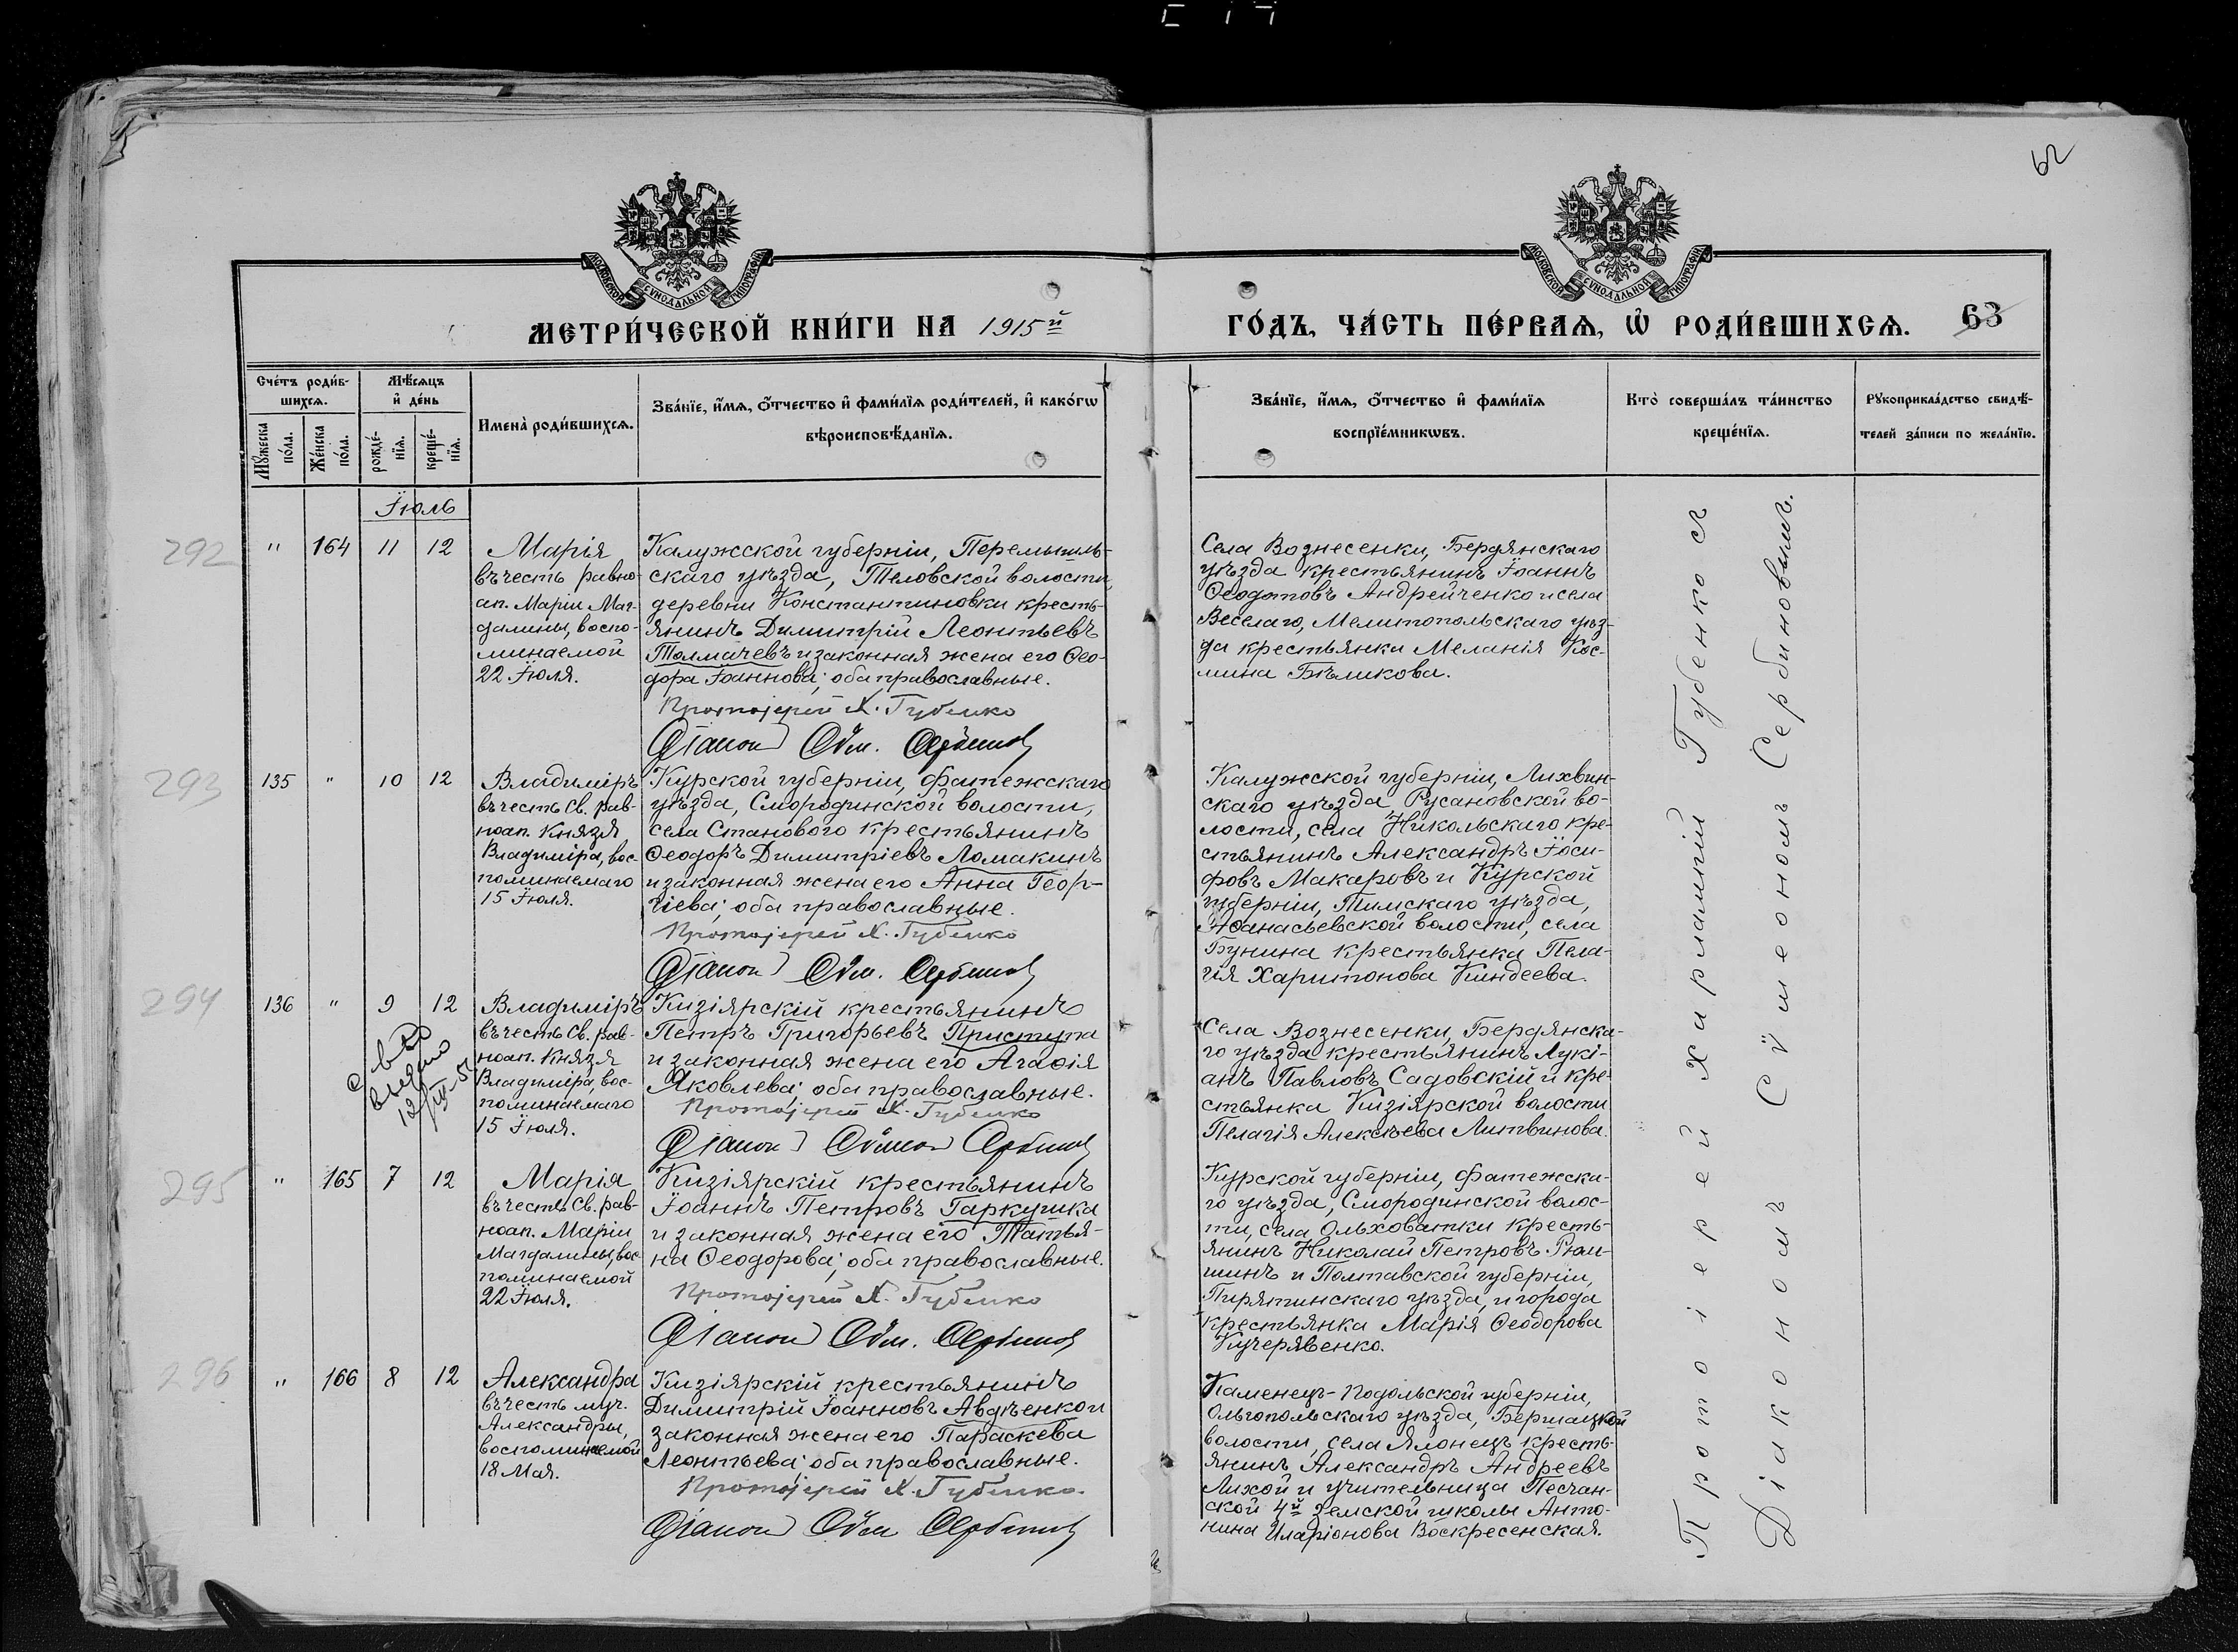 62
МОСКОВСКОЙ СѴНОДАЛЬНОЙ ТИПОГРАФІИ
МОСКОВСКОЙ СѴНОДАЛЬНОЙ ТИПОГРАФІИ
МЕТРИ́ЧЕСКОЙ КНИ́ГИ НА 1915й
ГО́ДЪ, ЧА́СТЬ ПЕ́РВАѦ, Ѡ҆ РОДИ́ВШИХСѦ. 63
Сче́тъ роди́в-
шихсѧ.
Мѣ́сѧцъ
и҆ де́нь
Мꙋ́жеска по́ла.
Же́нска по́ла.
рожде́-нїѧ.
креще́-нїѧ.
Имена̀ роди́вшихсѧ.
Зва́нїе, и҆́мѧ, ѻ҆́тчество и҆ фами́лїѧ роди́телей, и҆ како́гѡ
вѣроисповѣ́данїѧ.
Зва́нїе, и҆́мѧ, ѻ҆́тчество и҆ фами́лїѧ
воспрїе́мникѡвъ.
Кто̀ соверша́лъ та́инство
креще́нїѧ.
Рꙋкоприкла́дство свидѣ́-
телей за́писи по жела́нїю.
Їюль
292
" 164 11 12
Марія
въ честь равно-
ап. Маріи Маг-
далины, воспо-
минаемой
22 Їюля.
Калужской губерніи, Перемышль-
скаго уѣзда, Теловской волости,
деревни Константиновки кресть-
янинъ Димитрій Леонтьевъ
Толмачевъ и законная жена его Ѳео-
дора Їоаннова; оба православные.
Протоjерей Х. Губенко
Діакон Сѵм. Сербинов
Села Вознесенки, Бердянскаго
уѣзда крестьянинъ Їоаннъ
Ѳеодотовъ Андрейченко и села
Веселаго, Мелитопольскаго уѣз-
да крестьянка Меланія Кос-
мина Бѣликова.
293
135 " 10 12
Владиміръ
въ честь Св. рав-
ноап. Князя
Владиміра, вос-
поминаемаго
15 Їюля.
Курской губерніи, Фатежскаго
уѣзда, Смородинской волости,
села Станового крестьянинъ
Ѳеодоръ Димитріевъ Ломакинъ
и законная жена его Анна Геор-
гіева; оба православные.
Протоjерей Х. Губенко
Діакон Сѵм. Сербинов
Калужской губерніи, Лихвин-
скаго уѣзда Русановской во-
лости, села Никольскаго кре-
стьянинъ Александръ Їоси-
фовъ Макаровъ и Курской
губерніи, Тимскаго уѣзда,
Аѳанасьевской волости, села
Бунина крестьянка Пела-
гія Харитонова Киндеева.
294
136 " 9 12
с-во
выдано
Владиміръ
въ честь Св. рав-
ноап. Князя
Владиміра, вос-
поминаемаго
15 Їюля.
Кизіярскій крестьянинъ
Петръ Григорьевъ Приступа
и законная жена его Агаѳія
Яковлева; оба православные.
Протоjерей Х. Губенко
Діакон Сѵмеон Сербинов
Села Вознесенки, Бердянска-
го уѣзда крестьянинъ Лукі-
анъ Павловъ Садовскій и кре-
стьянка Кизіярской волости
Пелагія Алексѣева Литвинова.
295
" 165 7 12
Марія
въ честь Св. рав-
ноап. Маріи
Магдалины, вос-
поминаемой
22 Їюля.
Кизіярскій крестьянинъ
Їоаннъ Петровъ Гаркушка
и законная жена его Татья-
на Ѳеодорова; оба православные.
Протоjерей Х. Губенко
Діакон Сѵм. Сербинов
Курской губерніи, Фатежска-
го уѣзда, Смородинской волос-
ти, села Ольховатки кресть-
янинъ Николай Петровъ Рюм-
шинъ и Полтавской губерніи,
Пирятинскаго уѣзда, и города
крестьянка Марія Ѳеодорова
Кучерявенко.
296
" 166 8 12
Александра
въ честь муч.
Александры,
воспоминаемой
18 Мая.
Кизіярскій крестьянинъ
Димитрій Їоанновъ Авдѣенко и
законная жена его Параскева
Леонтьева; оба православные.
Протоjерей Х. Губенко.
Діакон Сѵм Сербинов
Каменецъ-Подольской губерніи,
Ольгопольскаго уѣзда, Бершадской
волости, села Ялонецъ кресть-
янинъ Александръ Андреевъ
Лихой и учительница Песчан-
ской 4й земской школы Анто-
нина Иларіонова Воскресенская.
Протоіерей Харлампій Губенко съ
Діакономъ Сѵмеономъ Сербиновымъ.